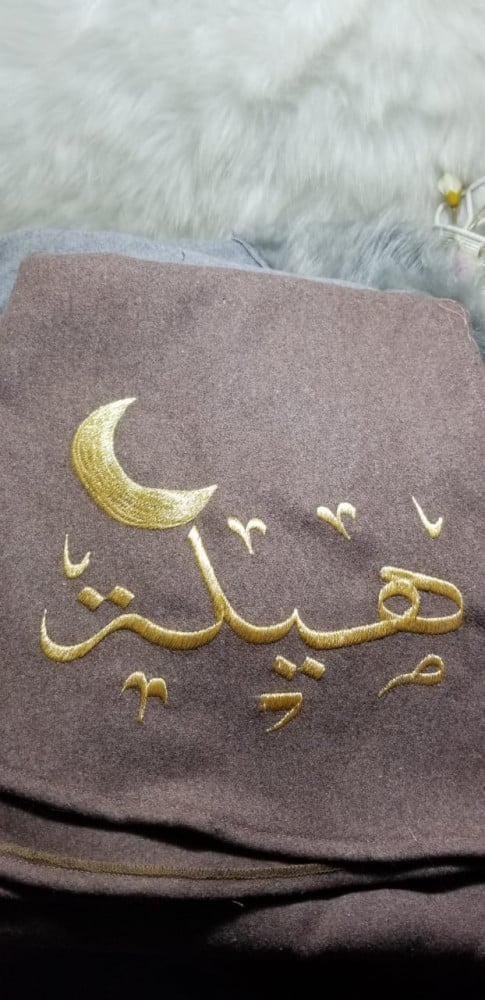 هيلة